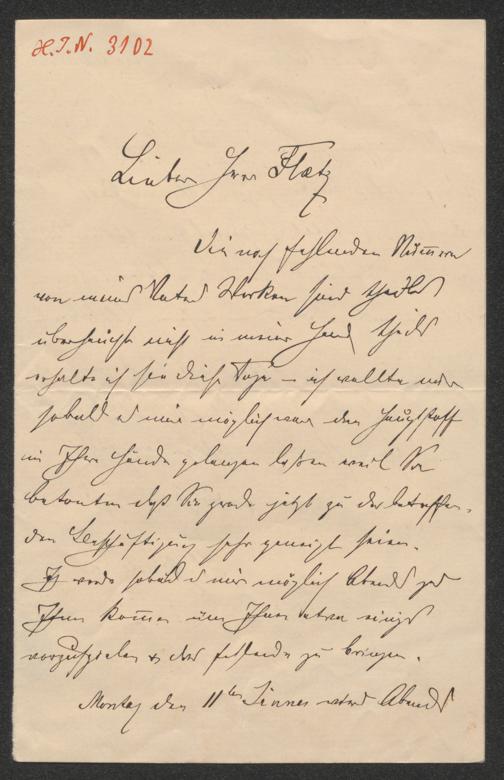 H.I.N. 3102
Lieber Herr Flatz
Die noch fehlenden Nummern
von meines Vaters Werken sind theils
überhaupt nicht in meiner Hand, theils
erhalte ich sie diese Tage – ich wollte nur
sobald es mir möglich war den Hauptstoff
in Ihre Hände gelangen lassen weil Sie
betonten daß Sie grade jetzt zu der betreffen-
den Beschäftigung sehr geneigt seien.
Ich werde sobald es mir möglich Abends zu
Ihnen kommen um Ihnen etwa einiges
vorzuspielen & das fehlende zu bringen.
Montag den 11ten Jänner wird Abends